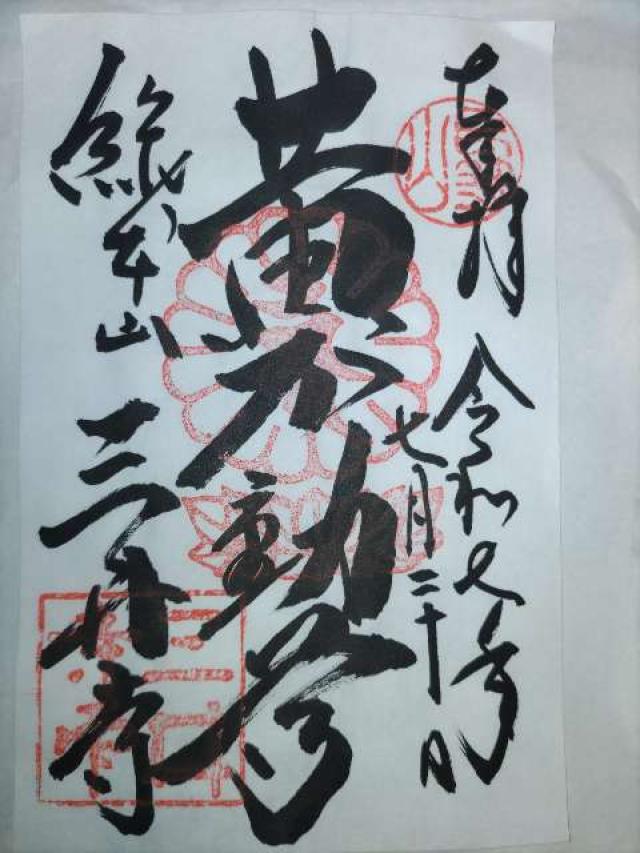 奉拝
令和七年
七月二十日
黄不動尊
総本山
三井寺